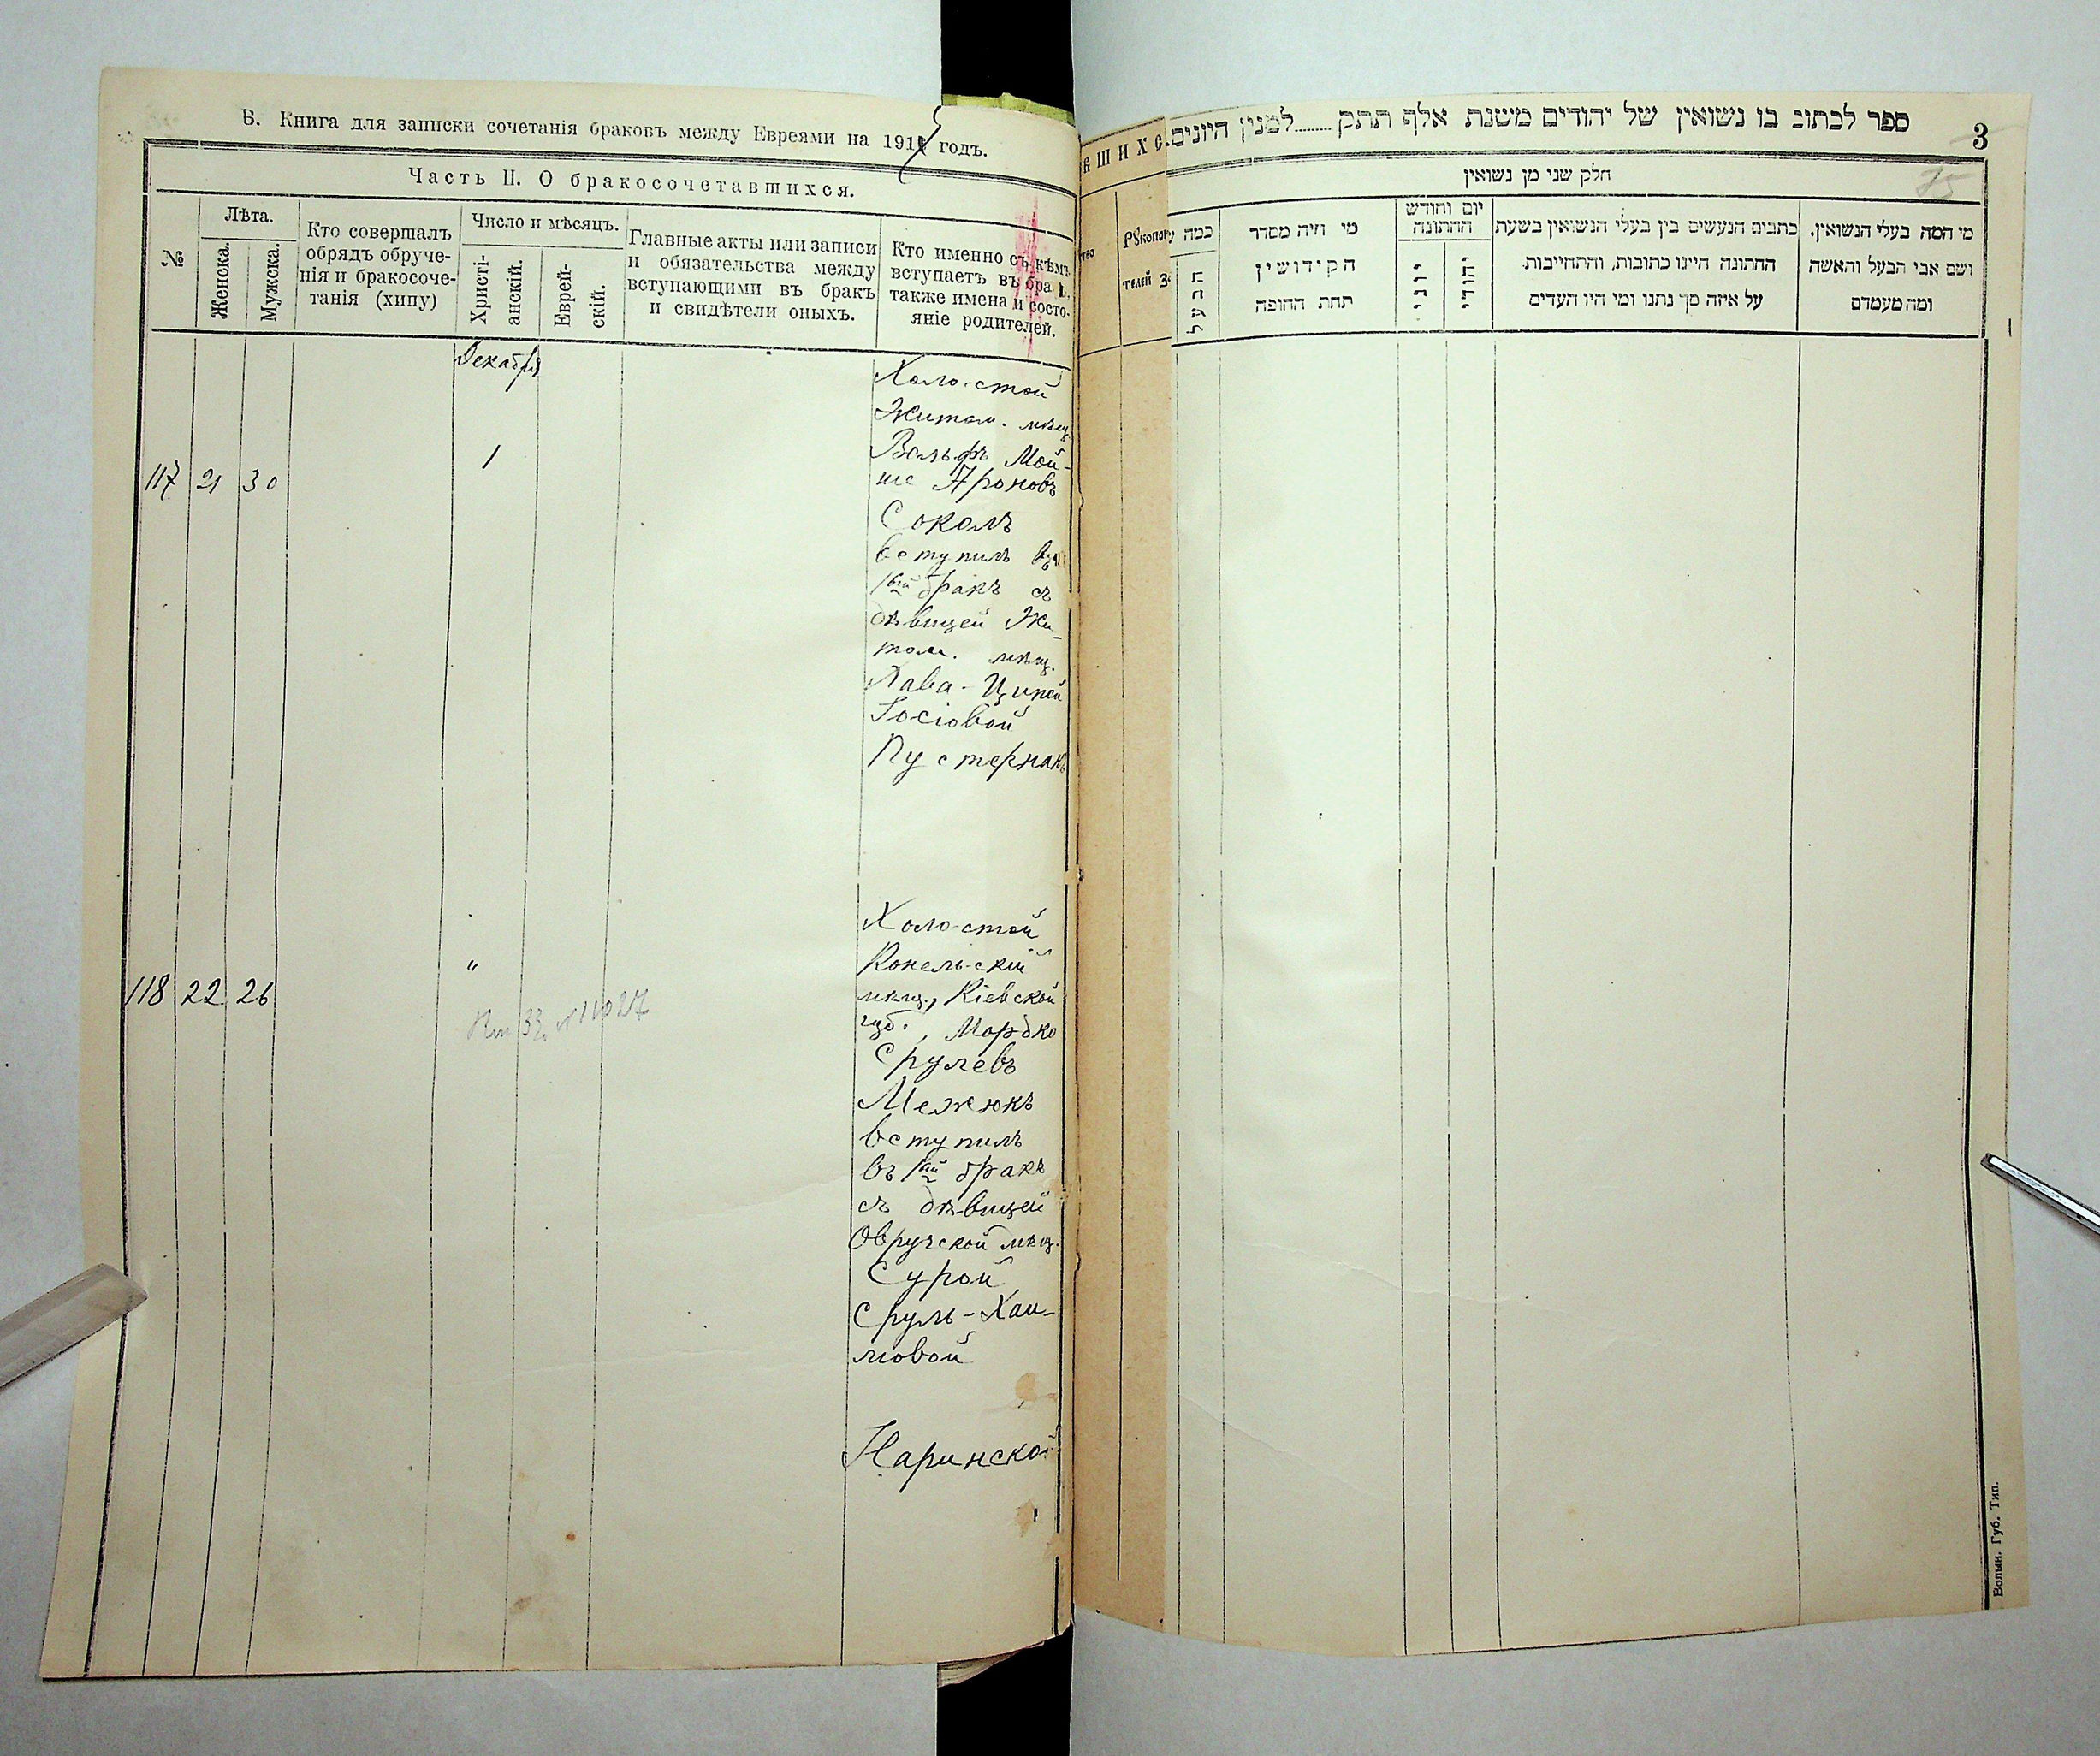 Б. Книга для записки сочетанія браковъ между Евреями на 191 годъ.
Часть II. О бракосочетавшихся.
№
Лѣта.
Женска.
Мужска.
Кто совершалъ
обрядъ обруче-
нія и бракосоче-
танія (хипу)
Число и мѣсяцъ.
Христі-
анскій.
Еврей-
скій.
Главные акты или записи
и обязательства между
вступающими въ бракъ
и свидѣтели оныхъ.
Кто именно съ кѣмъ
вступаетъ въ бра
также имена и состо-
яніе родителей.
Декабря
117 21 30
1
Холостой
Житом. мѣщ.
Вольфъ Мой-
ше Ароновъ
Соколъ
вступилъ въ
1ый бракъ съ
дѣвицей Жи-
том. мѣщ.
Ципой
Іосіовой
Пустернакъ
118 22 26
"
Холостой
Конельскій
мѣщ., Кіевской
губ., Мордко
Срулевъ
Межюкъ
вступилъ
въ 1ый бракъ
съ дѣвицей
Овручской мѣщ.
Сурой
Сруль-Хаи-
мовой
Наринской
вшихс
Рукопо
телей
ספר לכתוב בו נשואין של יהודים משנת אלף תתק........למנין היונים
3
75
חלק שני מן נשואין
כמה
הבעל
מי היה מסדר
הקידושין
תחת החופה
יום וחודש
החתונה
יוני
יהודי
כתבים הנעשים בין בעלי הנשואין בשעת
החתונה היינו כתובות, והתחייבות
על איזה סך נתנו ומי היו העדים
מי המה בעלי הנשואין,
ושם אבי הבעל והאשה
ומה מעמדם
Волын. Губ. Тип.